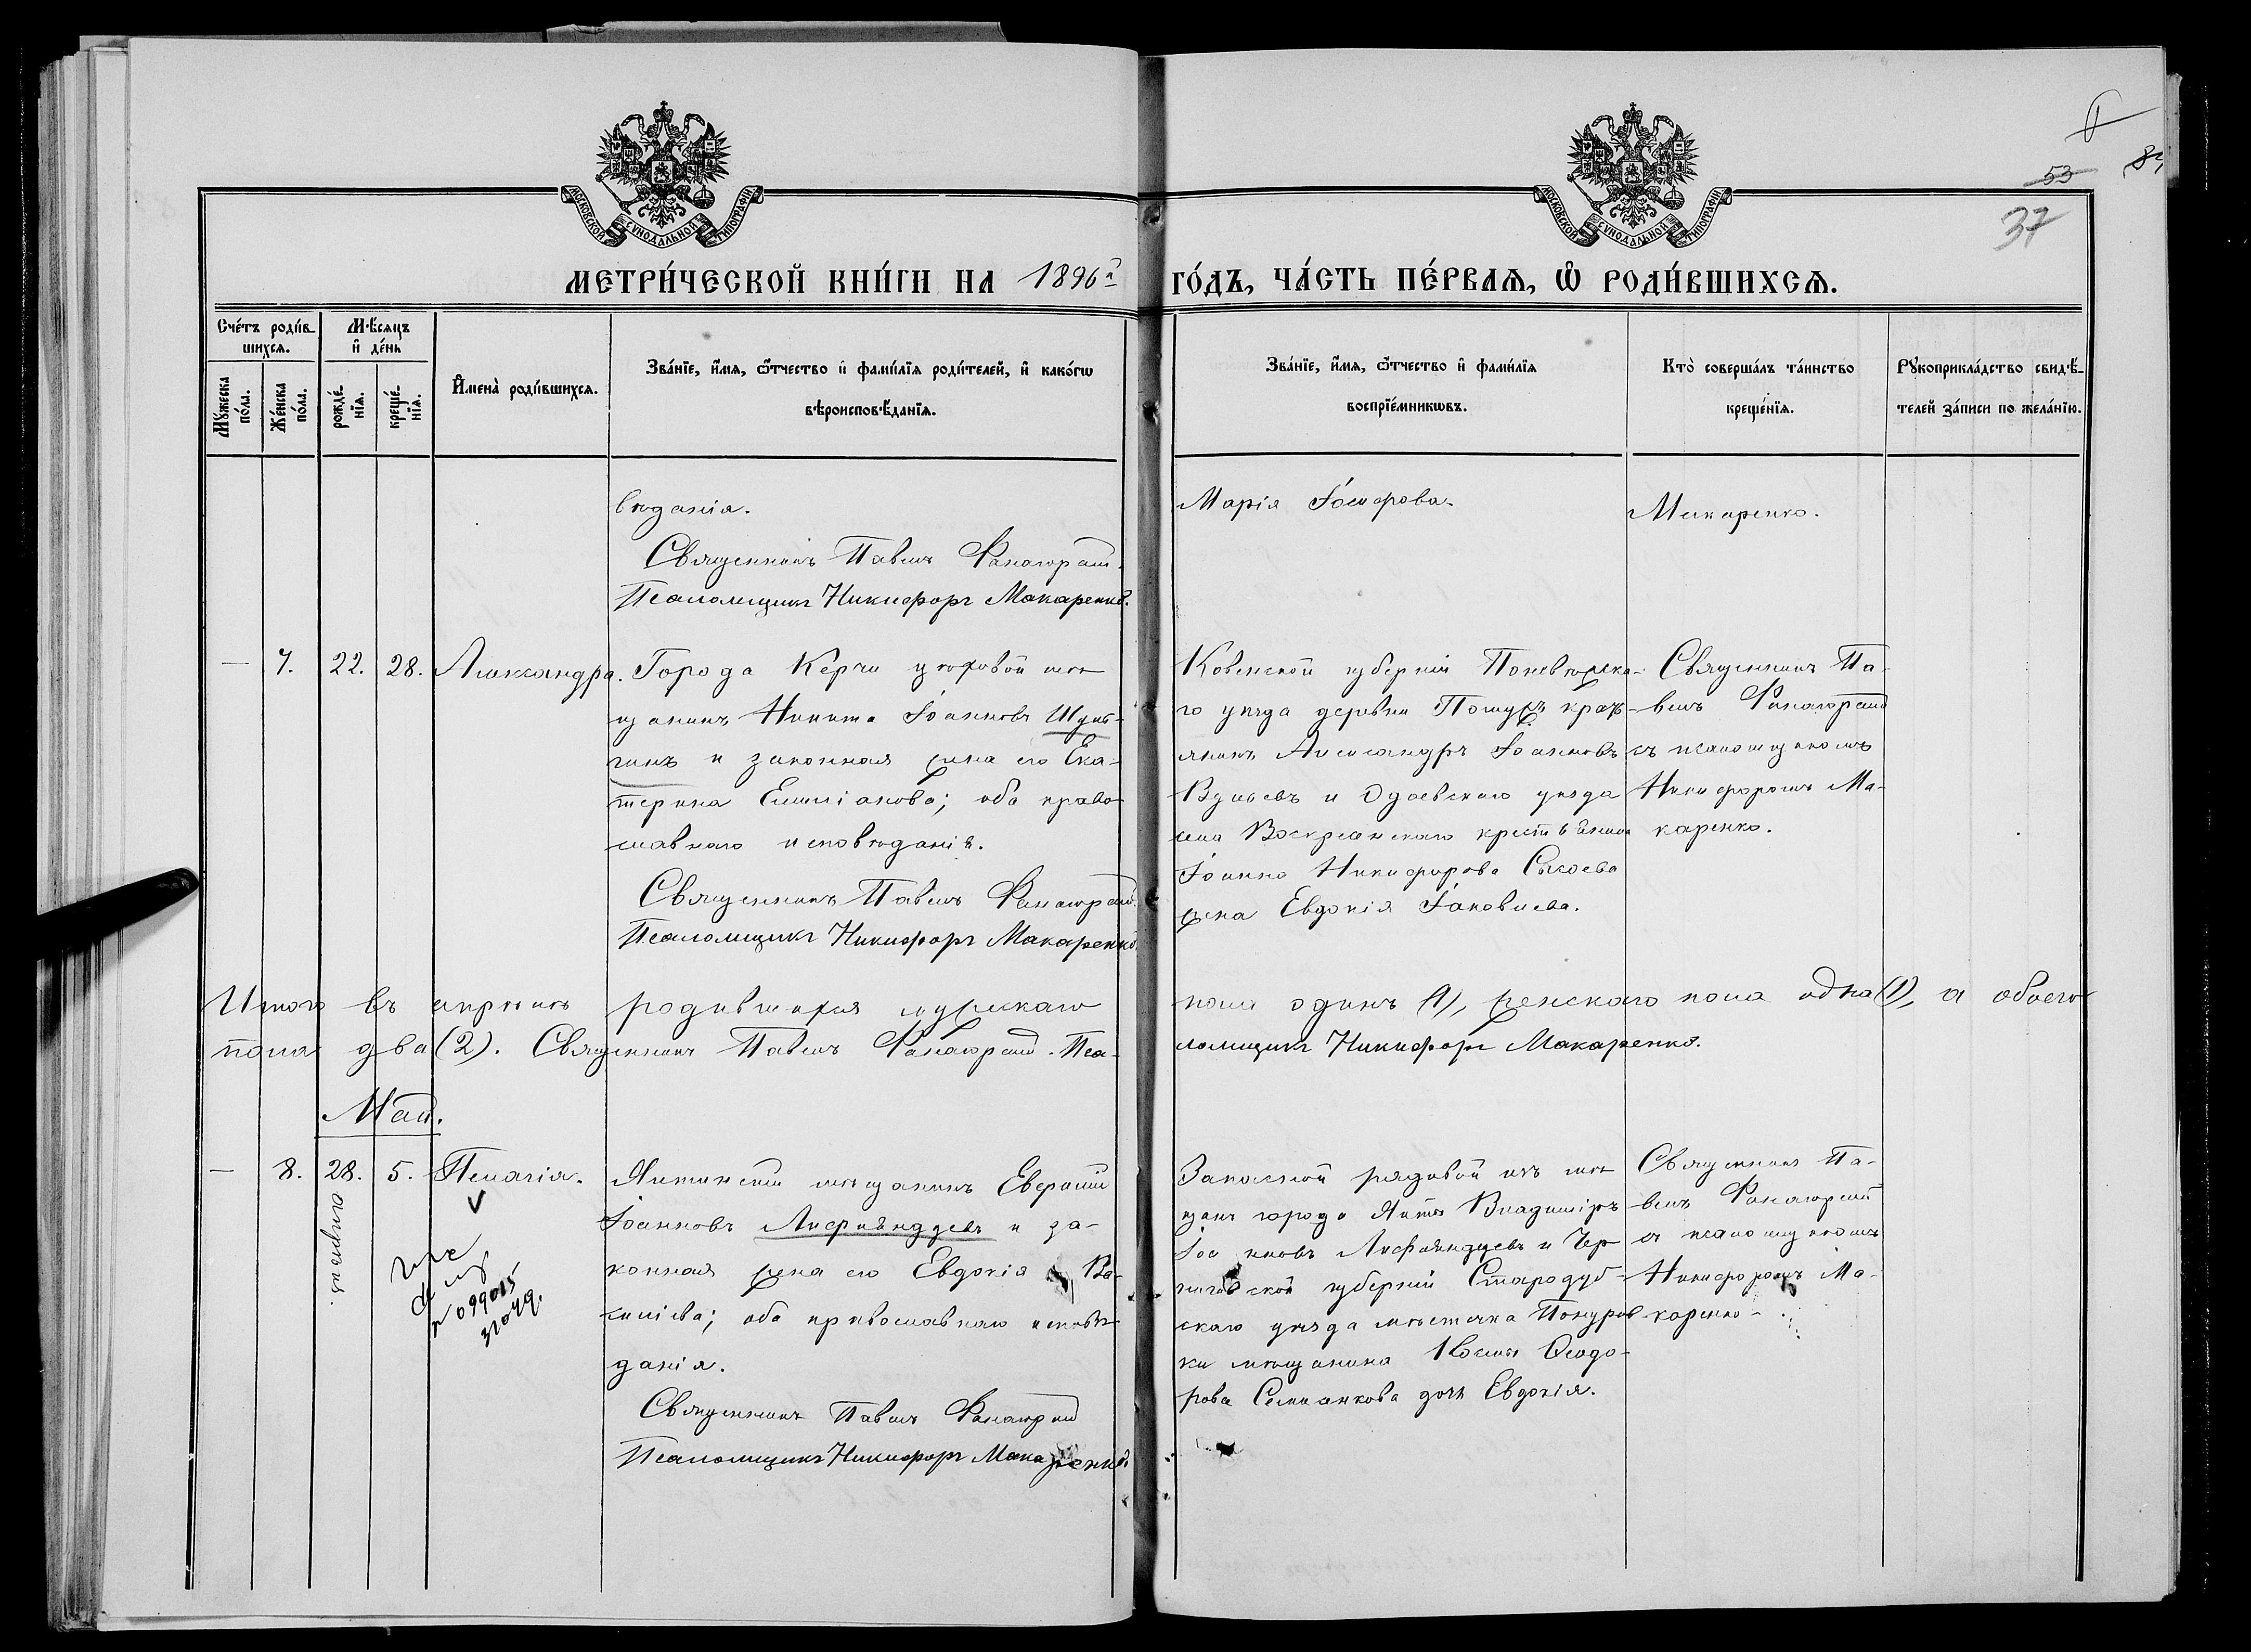 МОСКОВСКОЙ СѴНОДАЛЬНОЙ ТИПОГРАФІИ
МОСКОВСКОЙ СѴНОДАЛЬНОЙ ТИПОГРАФІИ
53
37
МЕТРИ́ЧЕСКОЙ КНИ́ГИ НА 1896 г. ГО́ДЪ, ЧА́СТЬ ПЕ́РВАѦ, Ѡ҆ РОДИ́ВШИХСѦ.
Сче́тъ роди́в-
шихсѧ.
Мѣ́сѧцъ
и҆ де́нь
Мꙋ́жеска по́ла.
Же́нска по́ла.
рожде́-
нїѧ.
креще́-
нїѧ.
И҆мена̀ роди́вшихсѧ.
Зва́нїе, и҆́мѧ, ѻ҆́тчество и҆ фами́лїѧ роди́телей, и҆ како́гѡ
вѣроисповѣ́данїѧ.
Зва́нїе, и҆́мѧ, ѻ҆́тчество и҆ фами́лїѧ
воспрїе́мникѡвъ.
Кто̀ соверша́лъ та́инство
креще́нїѧ.
Рꙋкоприкла́дство свидѣ́-
телей за́писи по жела́нїю.
вѣданія.
Священникъ Павелъ
Псаломщикъ Никифоръ Макаренко.
Марія
Макаренко.
—
7.
22.
28.
Александра.
Города Керчи цеховой мѣ-
щанинъ Никита Іоанновъ
и законная жена его Ека-
терина Емиліанова; оба право-
славнаго исповѣданія.
Священникъ Павелъ
Псаломщикъ Никифоръ Макаренко.
Ковенской губерніи Поневѣжска-
го уѣзда деревни
Александръ Іоанновъ
и Одоевскаго уѣзда
села Воскресенскаго крестьянина
Іоанна Никифорова Сысоева
жена Евдокія Іаковлева.
Священникъ Па-
велъ
съ псаломщикомъ
Никифоромъ Ма-
каренко.
Итого въ апрѣлѣ родившихся мужскаго пола одинъ (1), женскаго пола одна (1), а обоего
пола два (2). Священникъ Павелъ Псаломщикъ Никифоръ Макаренко.
Май.
—
8.
28.
апрѣль.
5.
Пелагія.
099015
Ялтинскій мѣщанинъ
Іоанновъ и за-
конная жена его Евдокія Ва-
силіева; оба православнаго исповѣ-
данія.
Священникъ Павелъ
Псаломщикъ Никифоръ Макаренко.
Запасной рядовой изъ мѣ-
щанъ города Ялты Владиміръ
Іоанновъ и Чер-
ниговской губерніи Стародуб-
скаго уѣзда мѣстечка Понуров-
ки мѣщанина Космы Ѳеодо-
рова дочь Евдокія.
Священникъ Па-
велъ
съ псаломщикомъ
Никифоромъ Ма-
каренко.